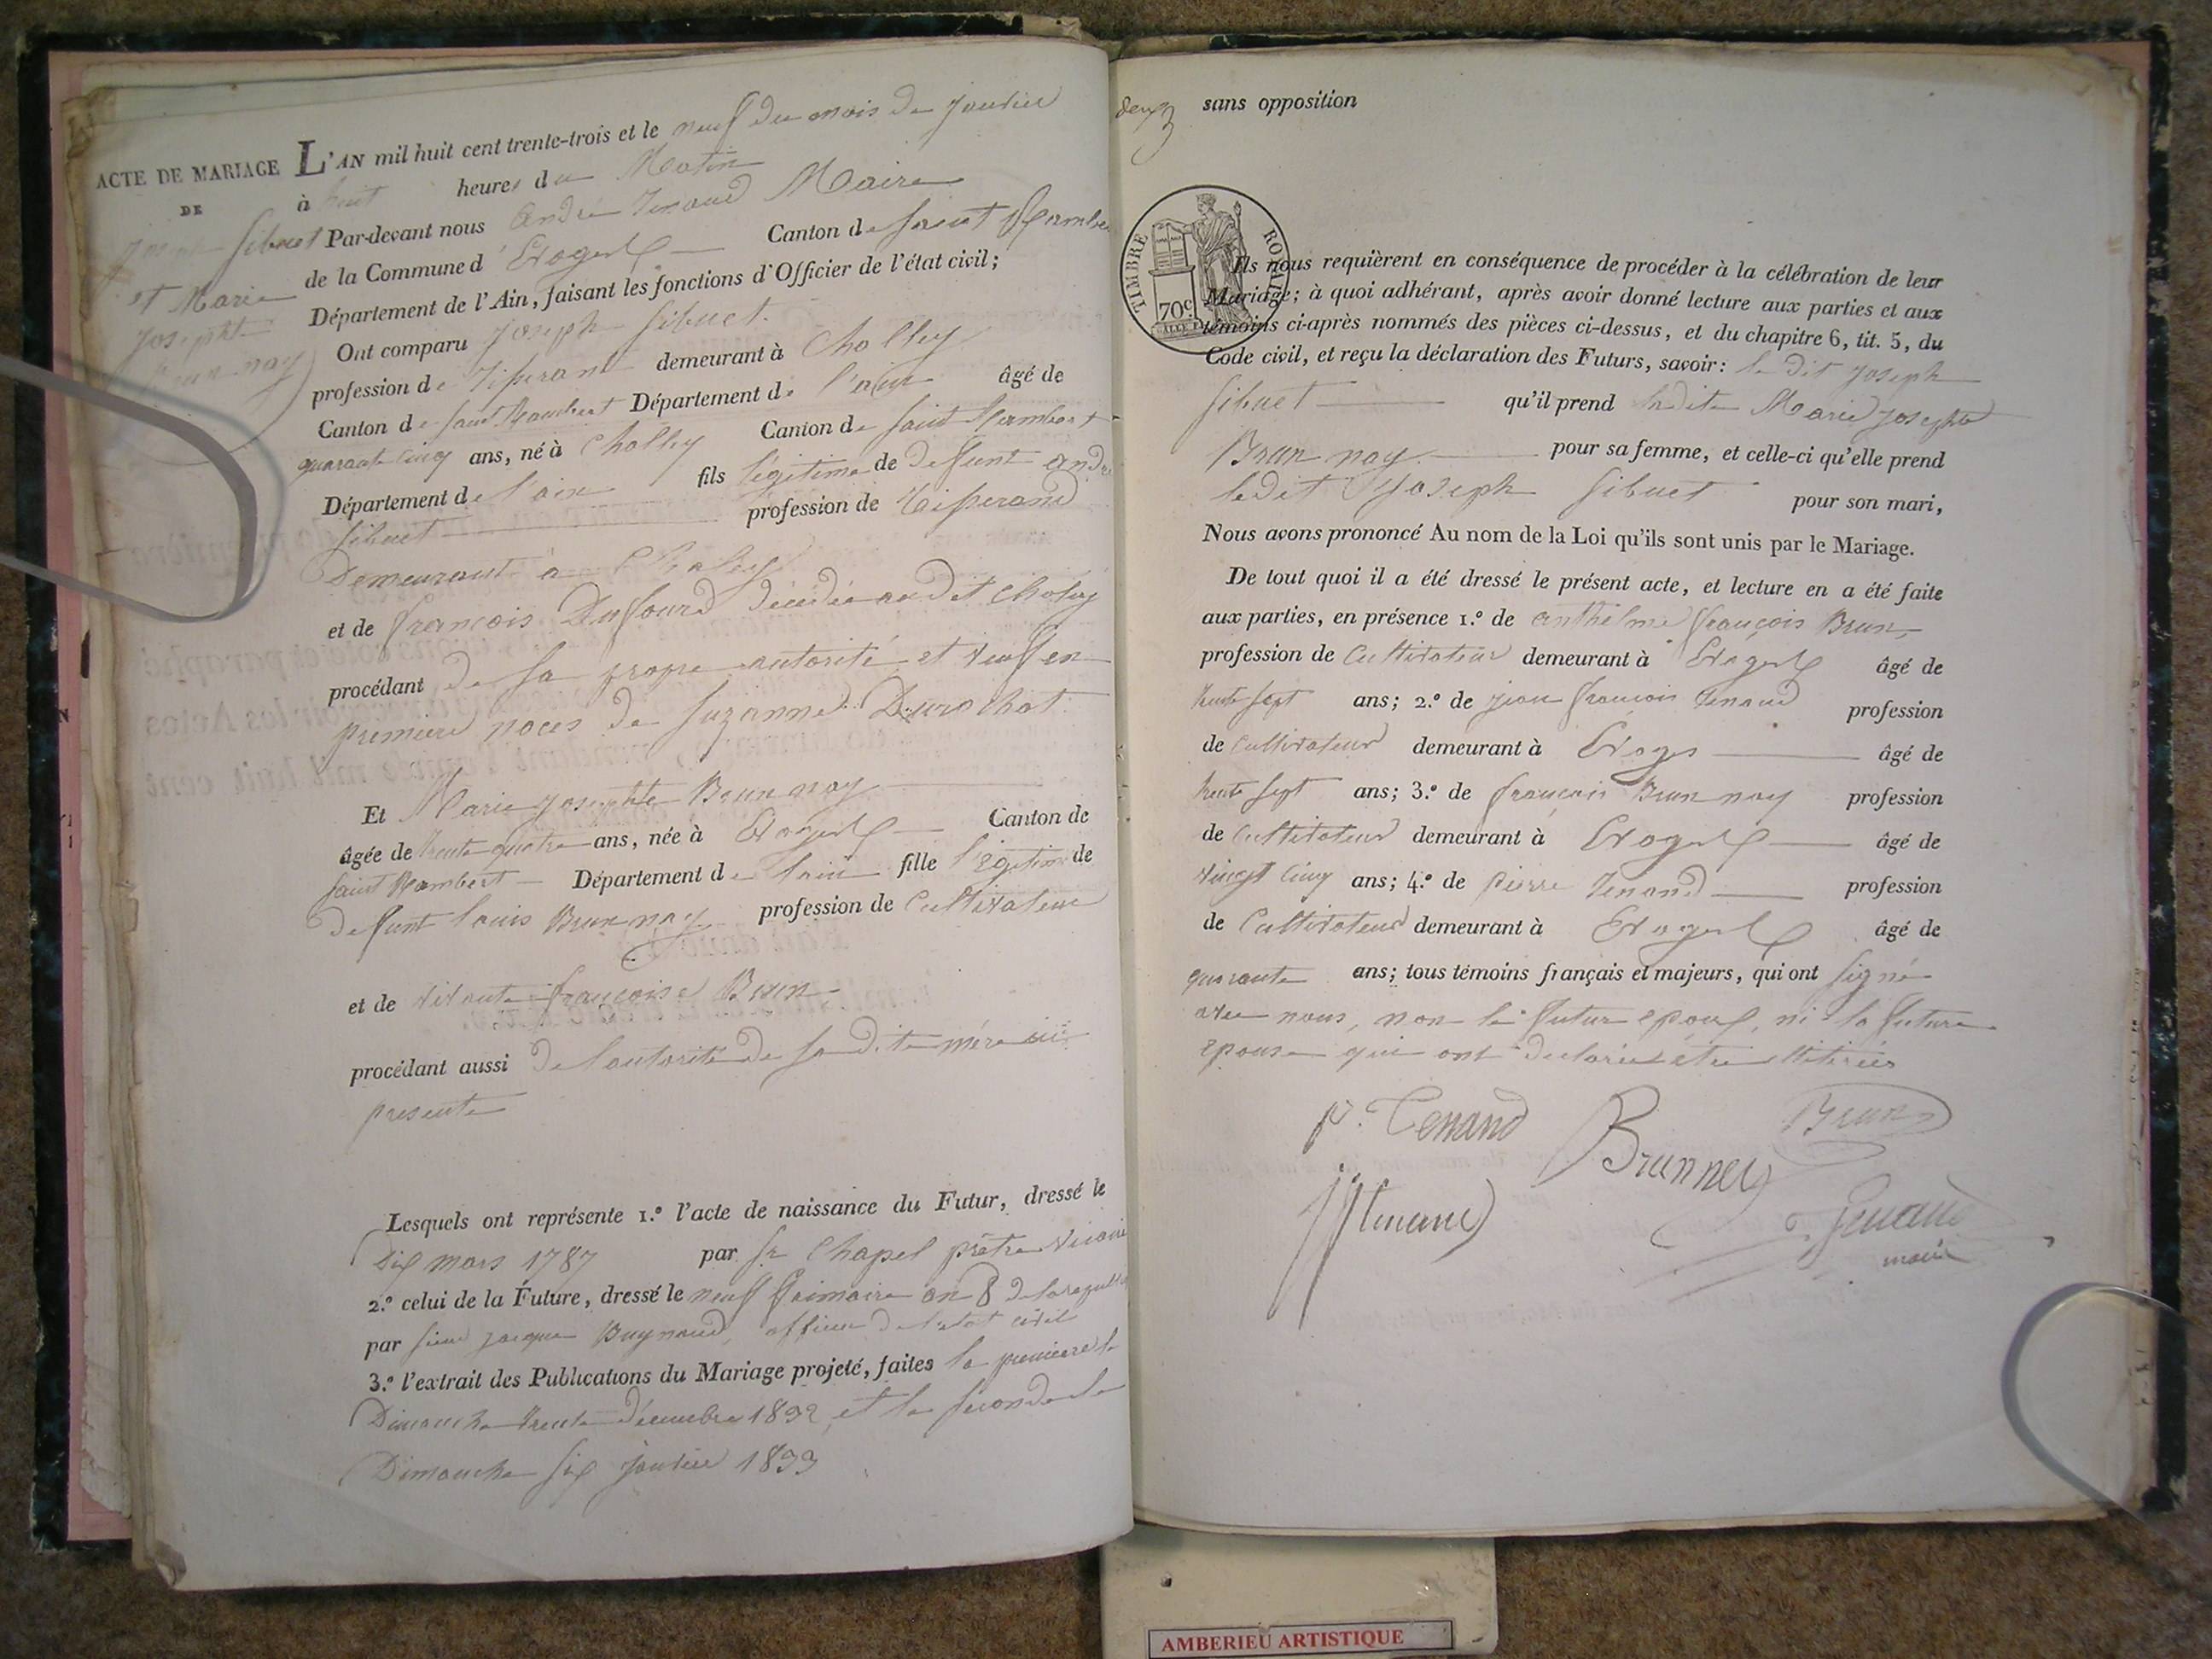 ACTE DE MARIAGE
DE
Joseph Sibuet
et Marie
Josephte
Brun noy
L'AN mil huit cent trente-trois et le neuf du mois de janvier
à huit heures du Matin
Par-devant nous andré Tenand Maire
de la Commune d'Evoges Canton de saint Rambert
Département de l'Ain, faisant les fonctions d'Officier de l'état civil;
Ont comparu Joseph Sibuet
profession de Tisserant demeurant à Challey
Canton de saint Rambert Département de l'ain âgé de
quarante cinq ans, né à Challey Canton de saint Rambert
Département de l'ain fils légitime de defunt andré
Sibuet profession de Tisserand
Demeurant à Chaley
et de françois Dufourd décédée au dit Chaley
procédant de sa propre autorité et veuf en
premiere noces de Suzanne Durochat
Et Marie Josephte Brun noy
âgée de trente quatre ans, née à Evoges Canton de
saint Rambert Département de l'ain fille légitime de
defunt louis Brun noy profession de Cultivateur
et de vivante françoise Brun
procédant aussi de l'autorité de sa dite mère ici
presente
Lesquels ont représente 1.º l'acte de naissance du Futur, dressé le
dix mars 1787 par Sr Chapel prêtre vicaire
2.º celui de la Future, dressé le neuf frimaire an 8 de la republ
par sieur jacque Buynand, officier de l'etat civil
3.º l'extrait des Publications du Mariage projeté, faites la premiere le
Dimanche trente décembre 1832, et la seconde le
Dimanche six janvier 1833
deux
sans opposition
TIMBRE ROYAL
70c
Ils nous requièrent en conséquence de procéder à la célébration de leur
Mariage; à quoi adhérant, après avoir donné lecture aux parties et aux
témoins ci-après nommés des pièces ci-dessus, et du chapitre 6, tit. 5, du
Code civil, et reçu la déclaration des Futurs, savoir: le dit Joseph
Sibuet qu'il prend ladite Marie Josephte
Brun noy pour sa femme, et celle-ci qu'elle prend
ledit Joseph Sibuet pour son mari,
Nous avons prononcé Au nom de la Loi qu'ils sont unis par le Mariage.
De tout quoi il a été dressé le présent acte, et lecture en a été faite
aux parties, en présence 1.º de anthelme françois Brun,
profession de Cultivateur demeurant à Evoges âgé de
trente sept ans; 2.º de jean françois Tenand profession
de Cultivateur demeurant à Evoges âgé de
trente sept ans; 3.º de françois Brun noy profession
de Cultivateur demeurant à Evoges âgé de
vingt cinq ans; 4.º de pierre Tenand profession
de Cultivateur demeurant à Evoges âgé de
quarante ans; tous témoins français et majeurs, qui ont signé
avec nous, non le futur epoux, ni la future
epouse qui ont declaré etre illitérés
p. Tenand Brunney Brun
jftenand Tenand
maire
AMBERIEU ARTISTIQUE